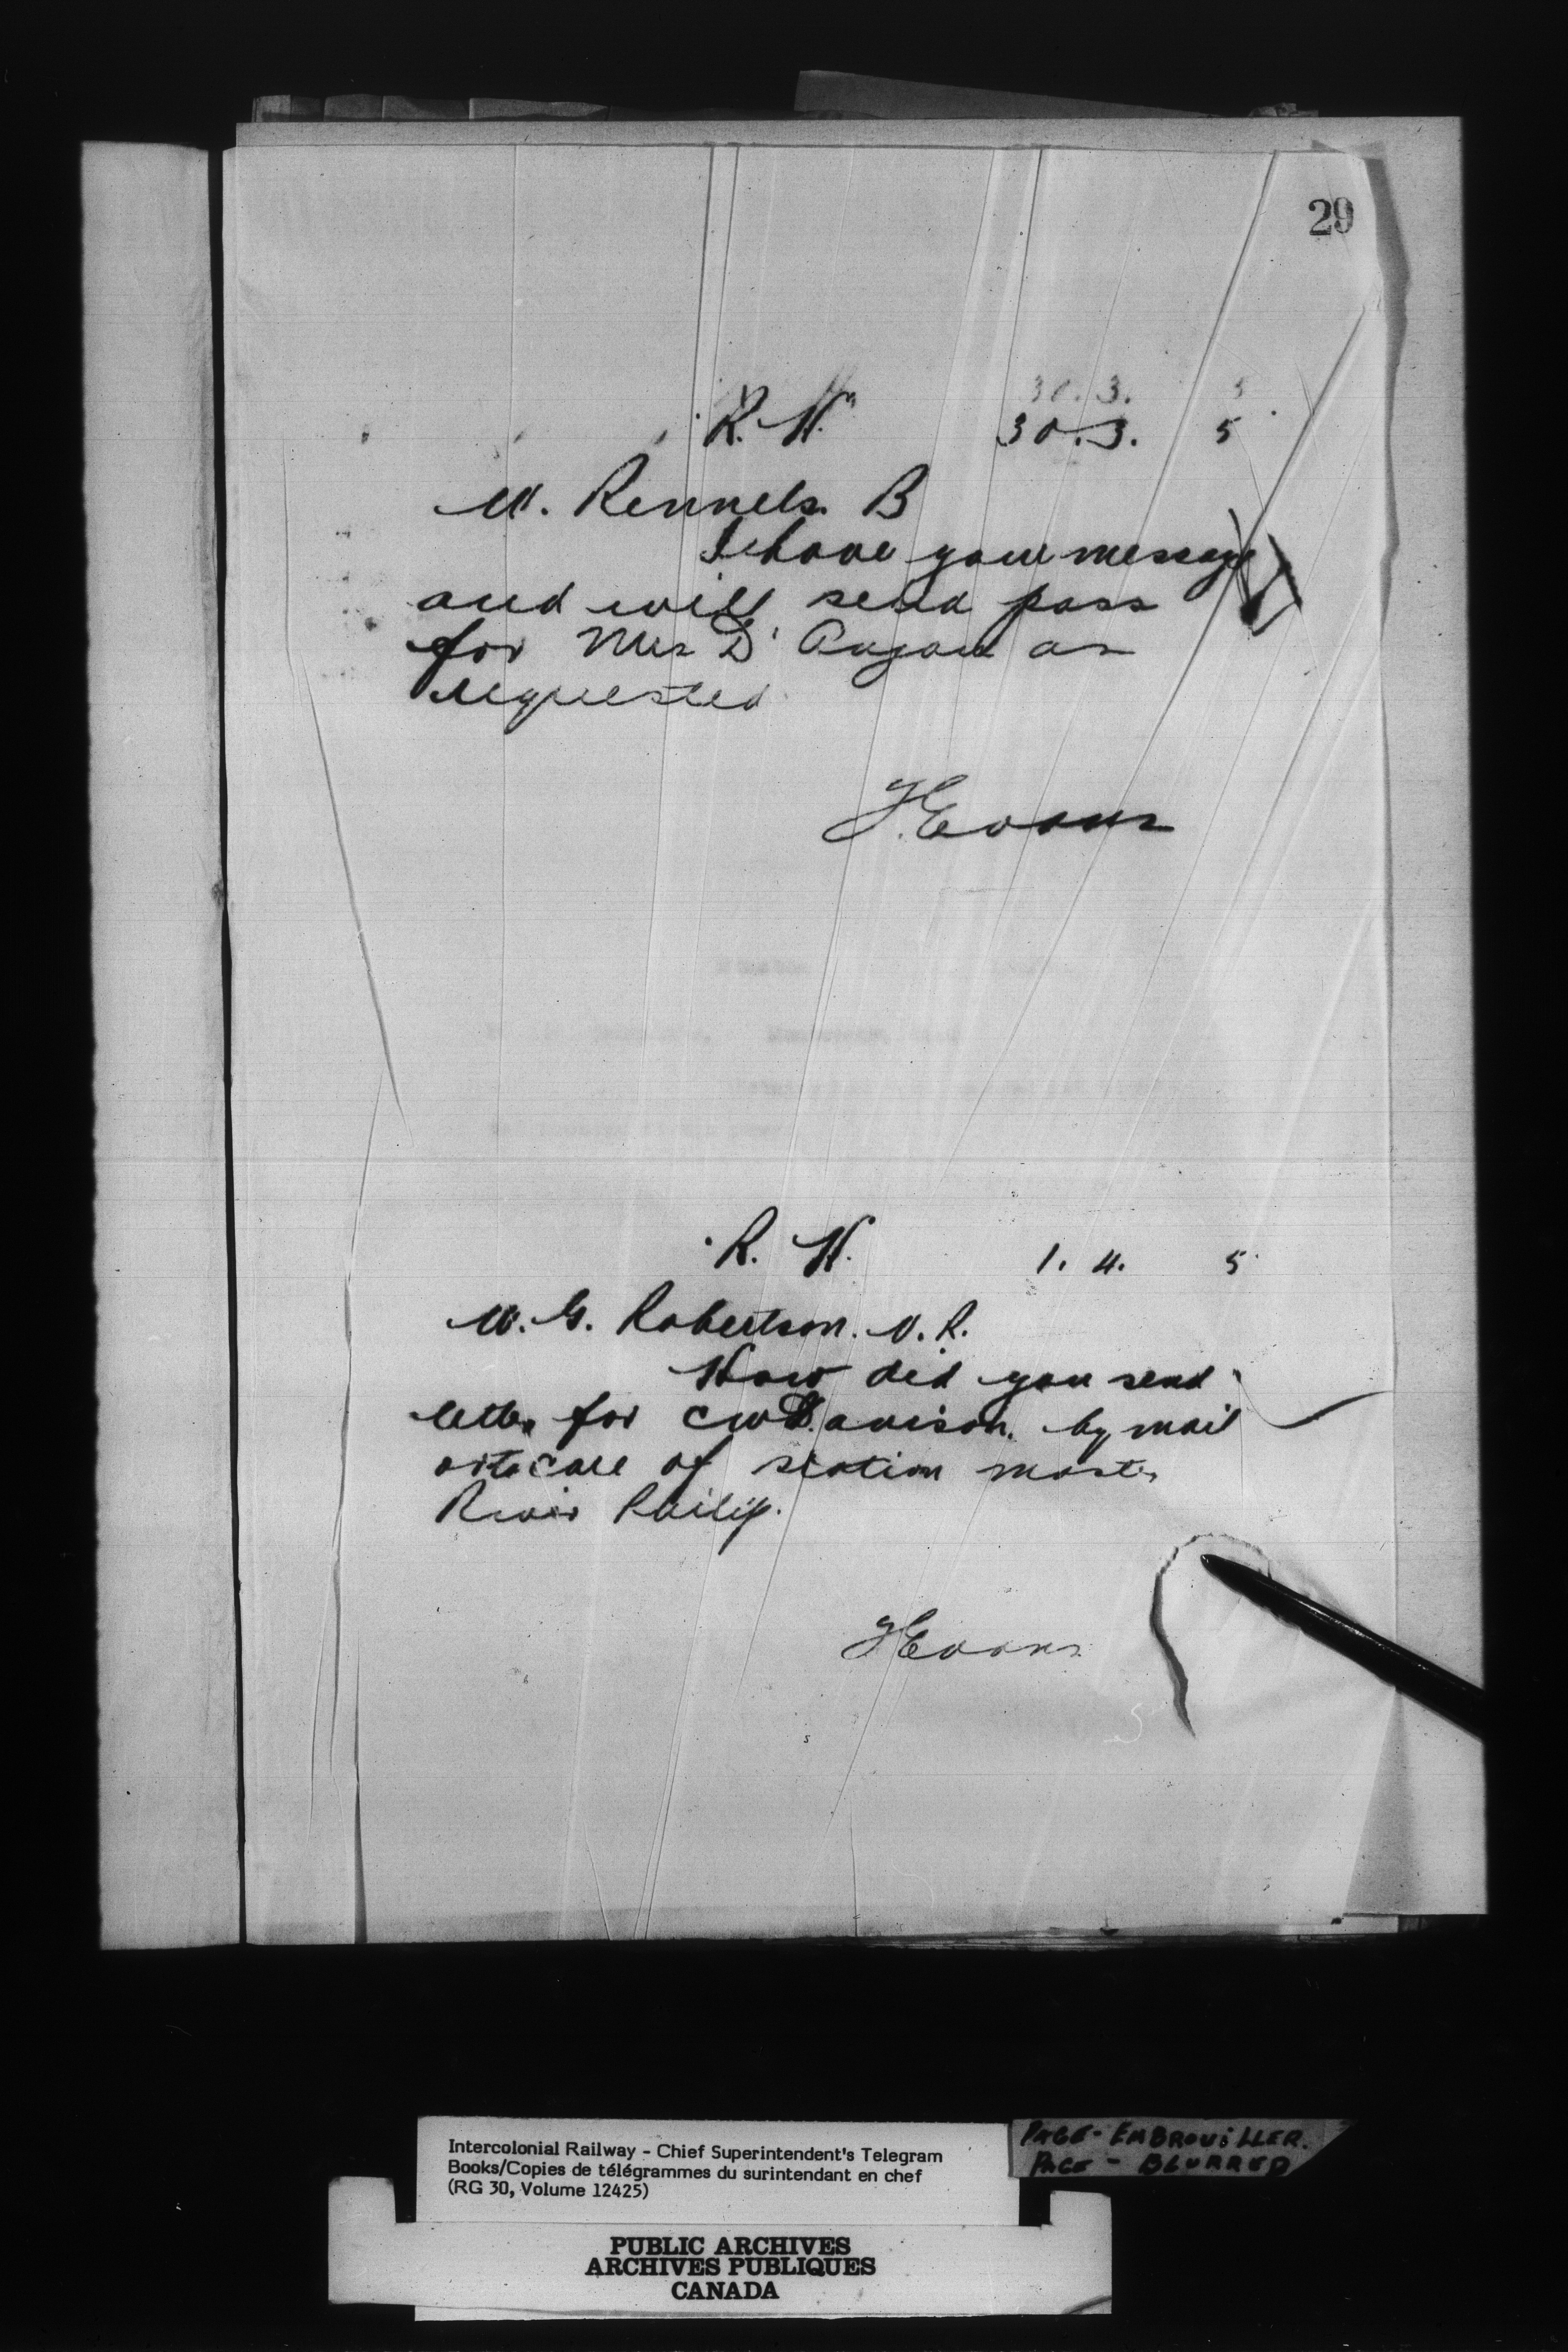 29
R. H. 30.3. 5
W. Rennels. B
I have your message
and will send pass
for Mrs D' Anjou as
requested
J. Evans
R. H. 1. 4. 5
W. G. Robertson. N. R.
How did you send
letter for CW Davison. by mail
or to care of station master
River Philip.
J Evans
Intercolonial Railway - Chief Superintendent's Telegram
Books/Copies de télégrammes du surintendant en chef
(RG 30, Volume 12425)
PAGE - EMBROUiLLER.
PAGE - BLURRED
PUBLIC ARCHIVES
ARCHIVES PUBLIQUES
CANADA